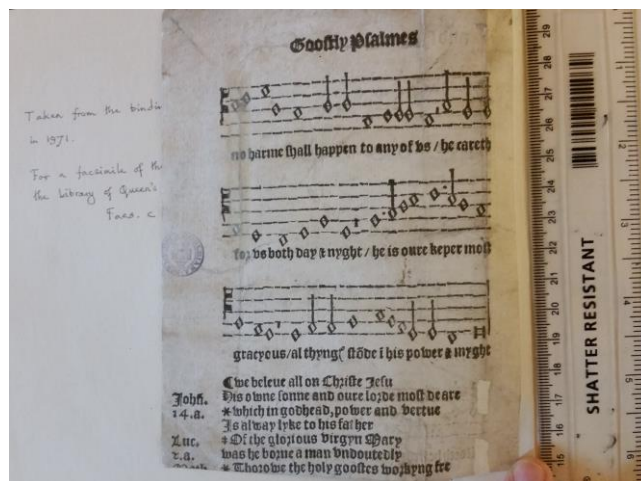 Goostly Psalmes
Taken from the bindi
in 1971.
For a facsimile of th
the Library of Queen's
Facs. c
no harme shall happen to any of vs / he careth
for vs both day & nyght / he is oure keper most
gracyous/al thyngſ stõde ĩ his power & myght
¶ we beleue all on Christe Jesu
John. His owne sonne and oure lorde most deare
14.a. * which in godhead, power and vertue
Is alway lyke to his father
Luc. * Of the glorious virgyn Mary
2.a. was he borne a man vndoutedly
* Thorowe the holy goostes workyng fre
SHATTER RESISTANT
219
218
217
216
215
214
213
212
211
210
19
18
17
16
15
13
12
11